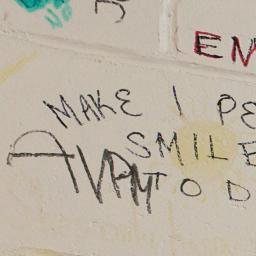 EN
MAKE 1 PE
SMILE
TOD